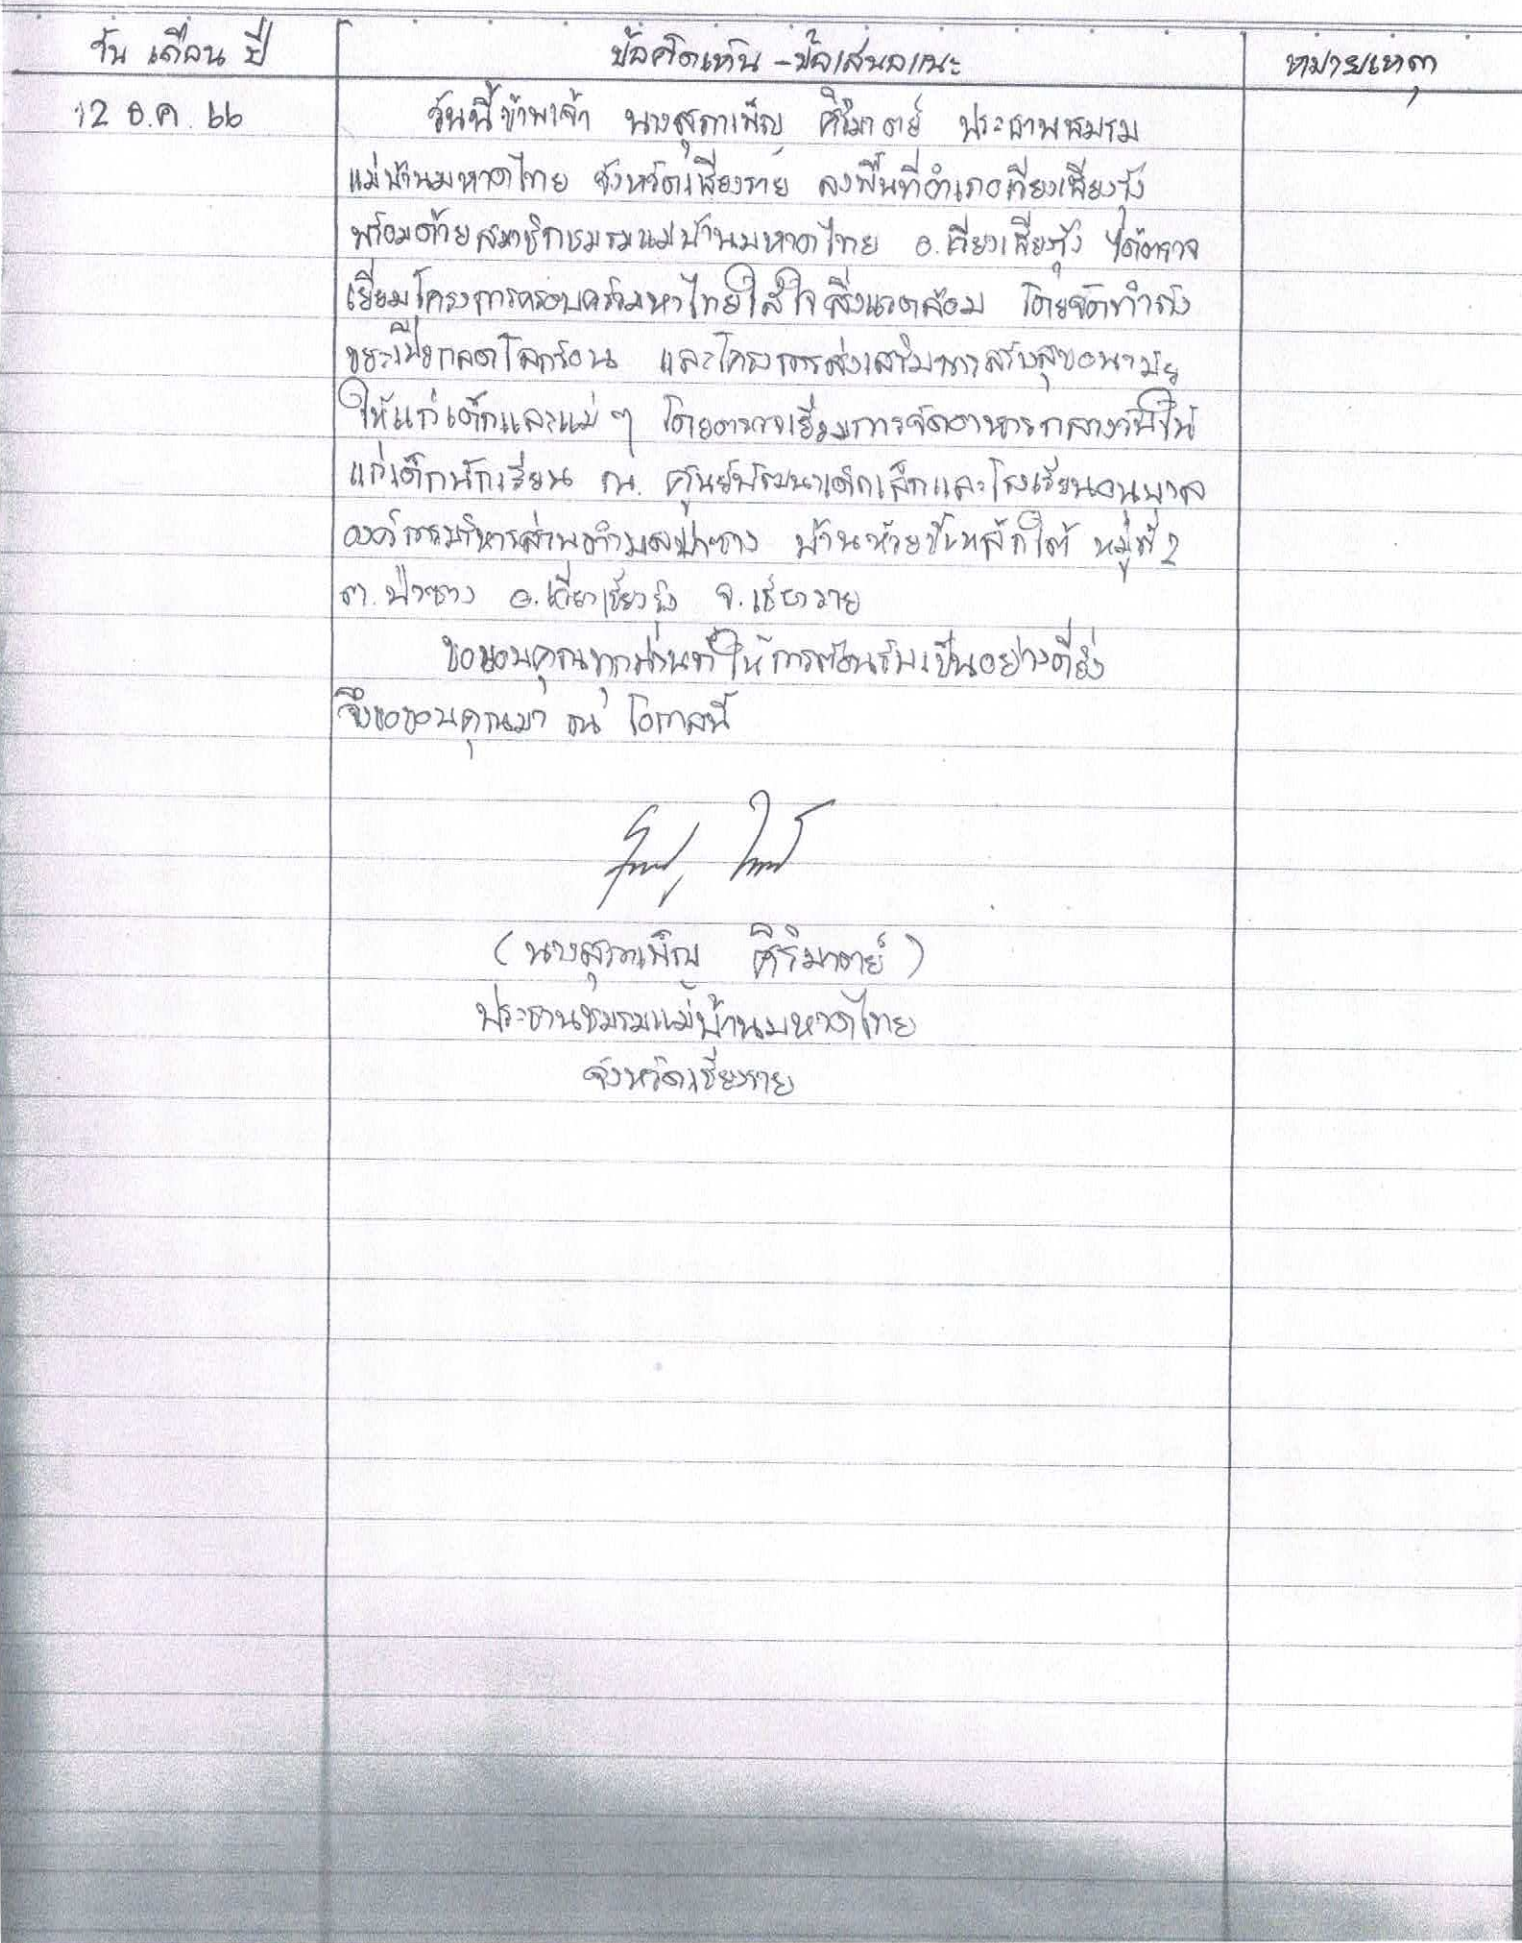 วัน เดือน ปี ข้อคิดเห็น - ข้อเสนอแนะ หมายเหตุ
12 ธ.ค. 66 วันนี้ข้าพเจ้า นางสุภาเพ็ญ ศิริมาตย์ ประธานชมรม
แม่บ้านมหาดไทย จังหวัดเชียงราย ลงพื้นที่อำเภอเวียงเชียงรุ้ง
พร้อมด้วยสมาชิกชมรมแม่บ้านมหาดไทย อ.เวียงเชียงรุ้ง ได้ตรวจ
เยี่ยมโครงการครอบครัวมหาไทยใส่ใจสิ่งแวดล้อม โดยจัดทำถัง
ขยะเปียกลดโลกร้อน และโครงการส่งเสริมการสร้างสุขอนามัย
ให้แก่เด็กและแม่ ๆ โดยตรวจเยี่ยมการจัดอาหารกลางวันให้
แก่เด็กนักเรียน ณ ศูนย์พัฒนาเด็กเล็กและโรงเรียนอนุบาล
องค์การบริหารส่วนตำบลป่าซาง บ้านห้วยขี้เหล็กใต้ หมู่ที่ 2
ต.ป่าซาง อ.เวียงเชียงรุ้ง จ.เชียงราย
ขอขอบคุณทุกท่านที่ให้การต้อนรับเป็นอย่างดียิ่ง
จึงขอขอบคุณมา ณ โอกาสนี้
(นางสุภาเพ็ญ ศิริมาตย์)
ประธานชมรมแม่บ้านมหาดไทย
จังหวัดเชียงราย